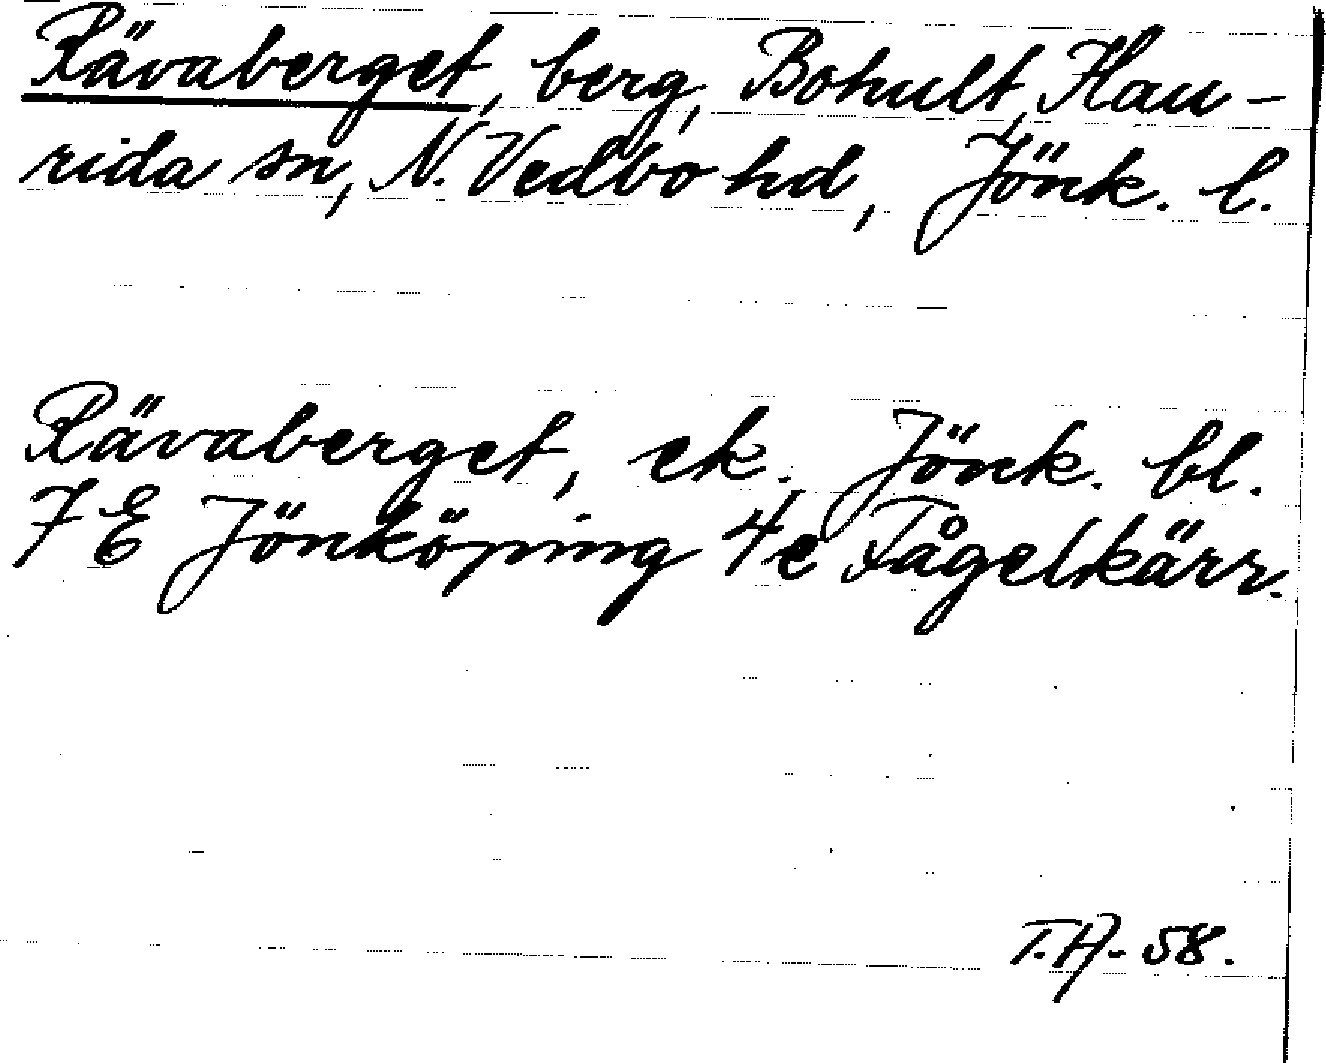 Rävaberget, berg, Bohult, Hau-
rida sn, N. Vedbo hd, Jönk. l.
Rävaberget, ek. Jönk. bl.
7 E Jönköping 4e Fågelkärr.
T.A. 58.